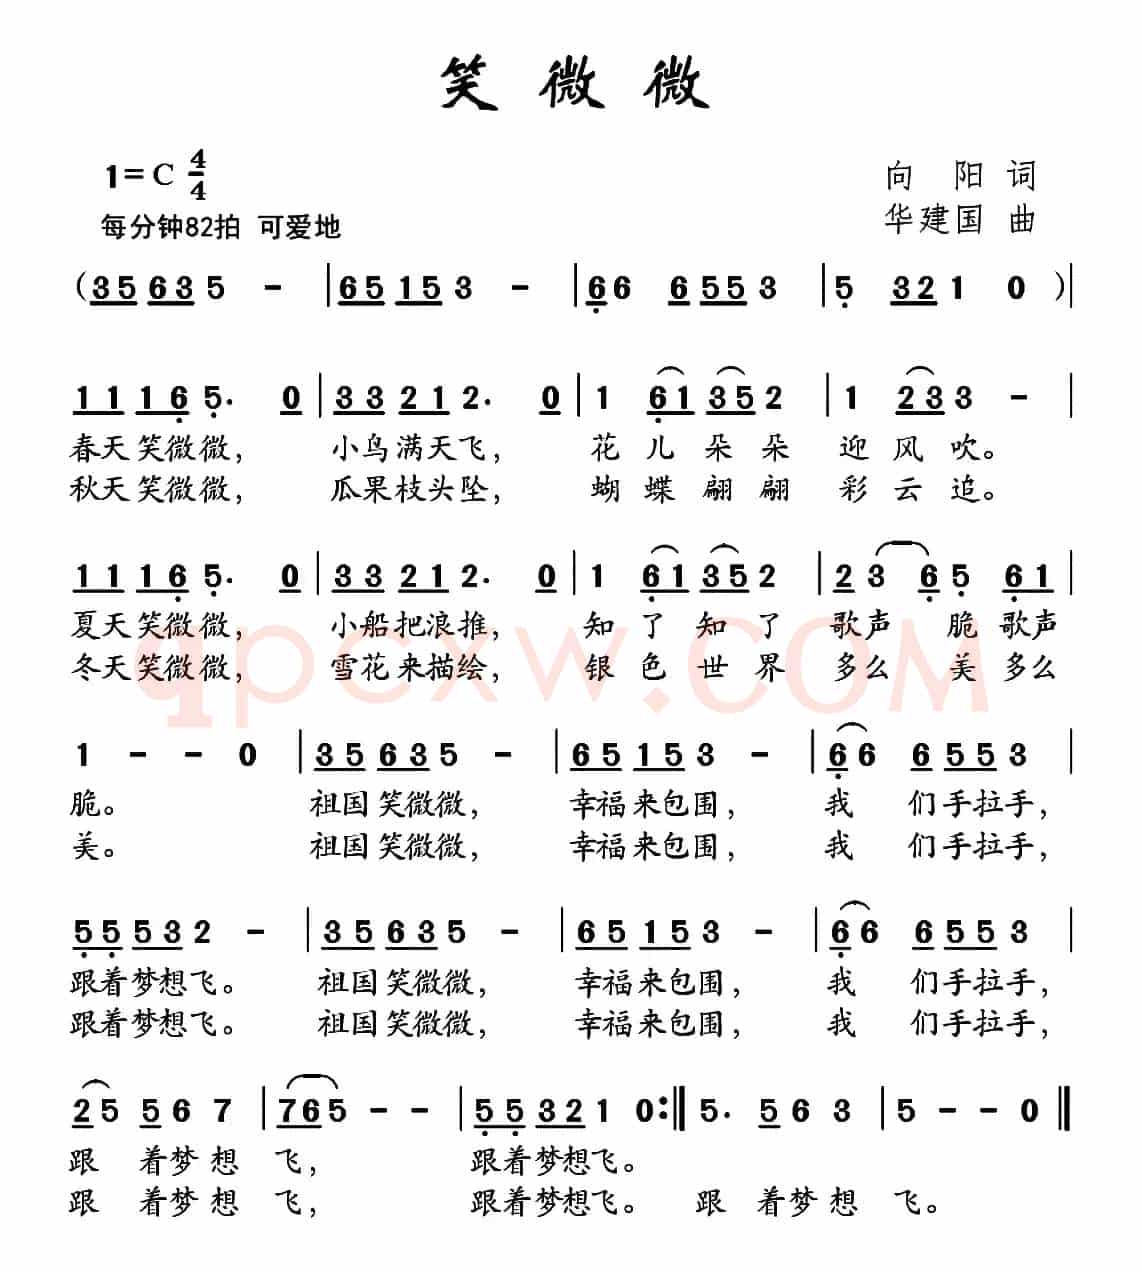 笑微微
1=C 4/4
向阳词
每分钟82拍 可爱地
华建国 曲
(35 63 5 - | 65 15 3 - | 6̣6 6 55 3 | 5̣ 32 1 0 )|
11 16̣ 5̣. 0 | 33 21 2. 0 | 1 6̣1 35 2 | 1 23 3 - |
春天笑微微, 小鸟满天飞, 花儿朵朵 迎风吹。
秋天笑微微, 瓜果枝头坠, 蝴蝶翩翩 彩云追。
11 16̣ 5̣. 0 | 33 21 2. 0 | 1 6̣1 35 2 | 2 3 6̣ 5̣ 6̣1 |
夏天笑微微, 小船把浪推, 知了知了 歌声 脆歌声
冬天笑微微, 雪花来描绘, 银色世界 多么 美多么
qpcxw.COM
1 - - 0 | 35 63 5 - | 65 15 3 - | 6̣6 6 55 3 |
脆。 祖国笑微微, 幸福来包围, 我 们手拉手,
美。 祖国笑微微, 幸福来包围, 我 们手拉手,
5̣5̣ 53 2 - | 35 63 5 - | 65 15 3 - | 6̣6 6 55 3 |
跟着梦想飞。 祖国笑微微, 幸福来包围, 我 们手拉手,
跟着梦想飞。 祖国笑微微, 幸福来包围, 我 们手拉手,
25 5 6 7 | 765 - - | 5̣5̣ 321 0 :‖ 5. 5 6 3 | 5 - - 0 ‖
跟 着梦想 飞, 跟着梦想飞。
跟 着梦想 飞, 跟着梦想飞。 跟 着梦想 飞。